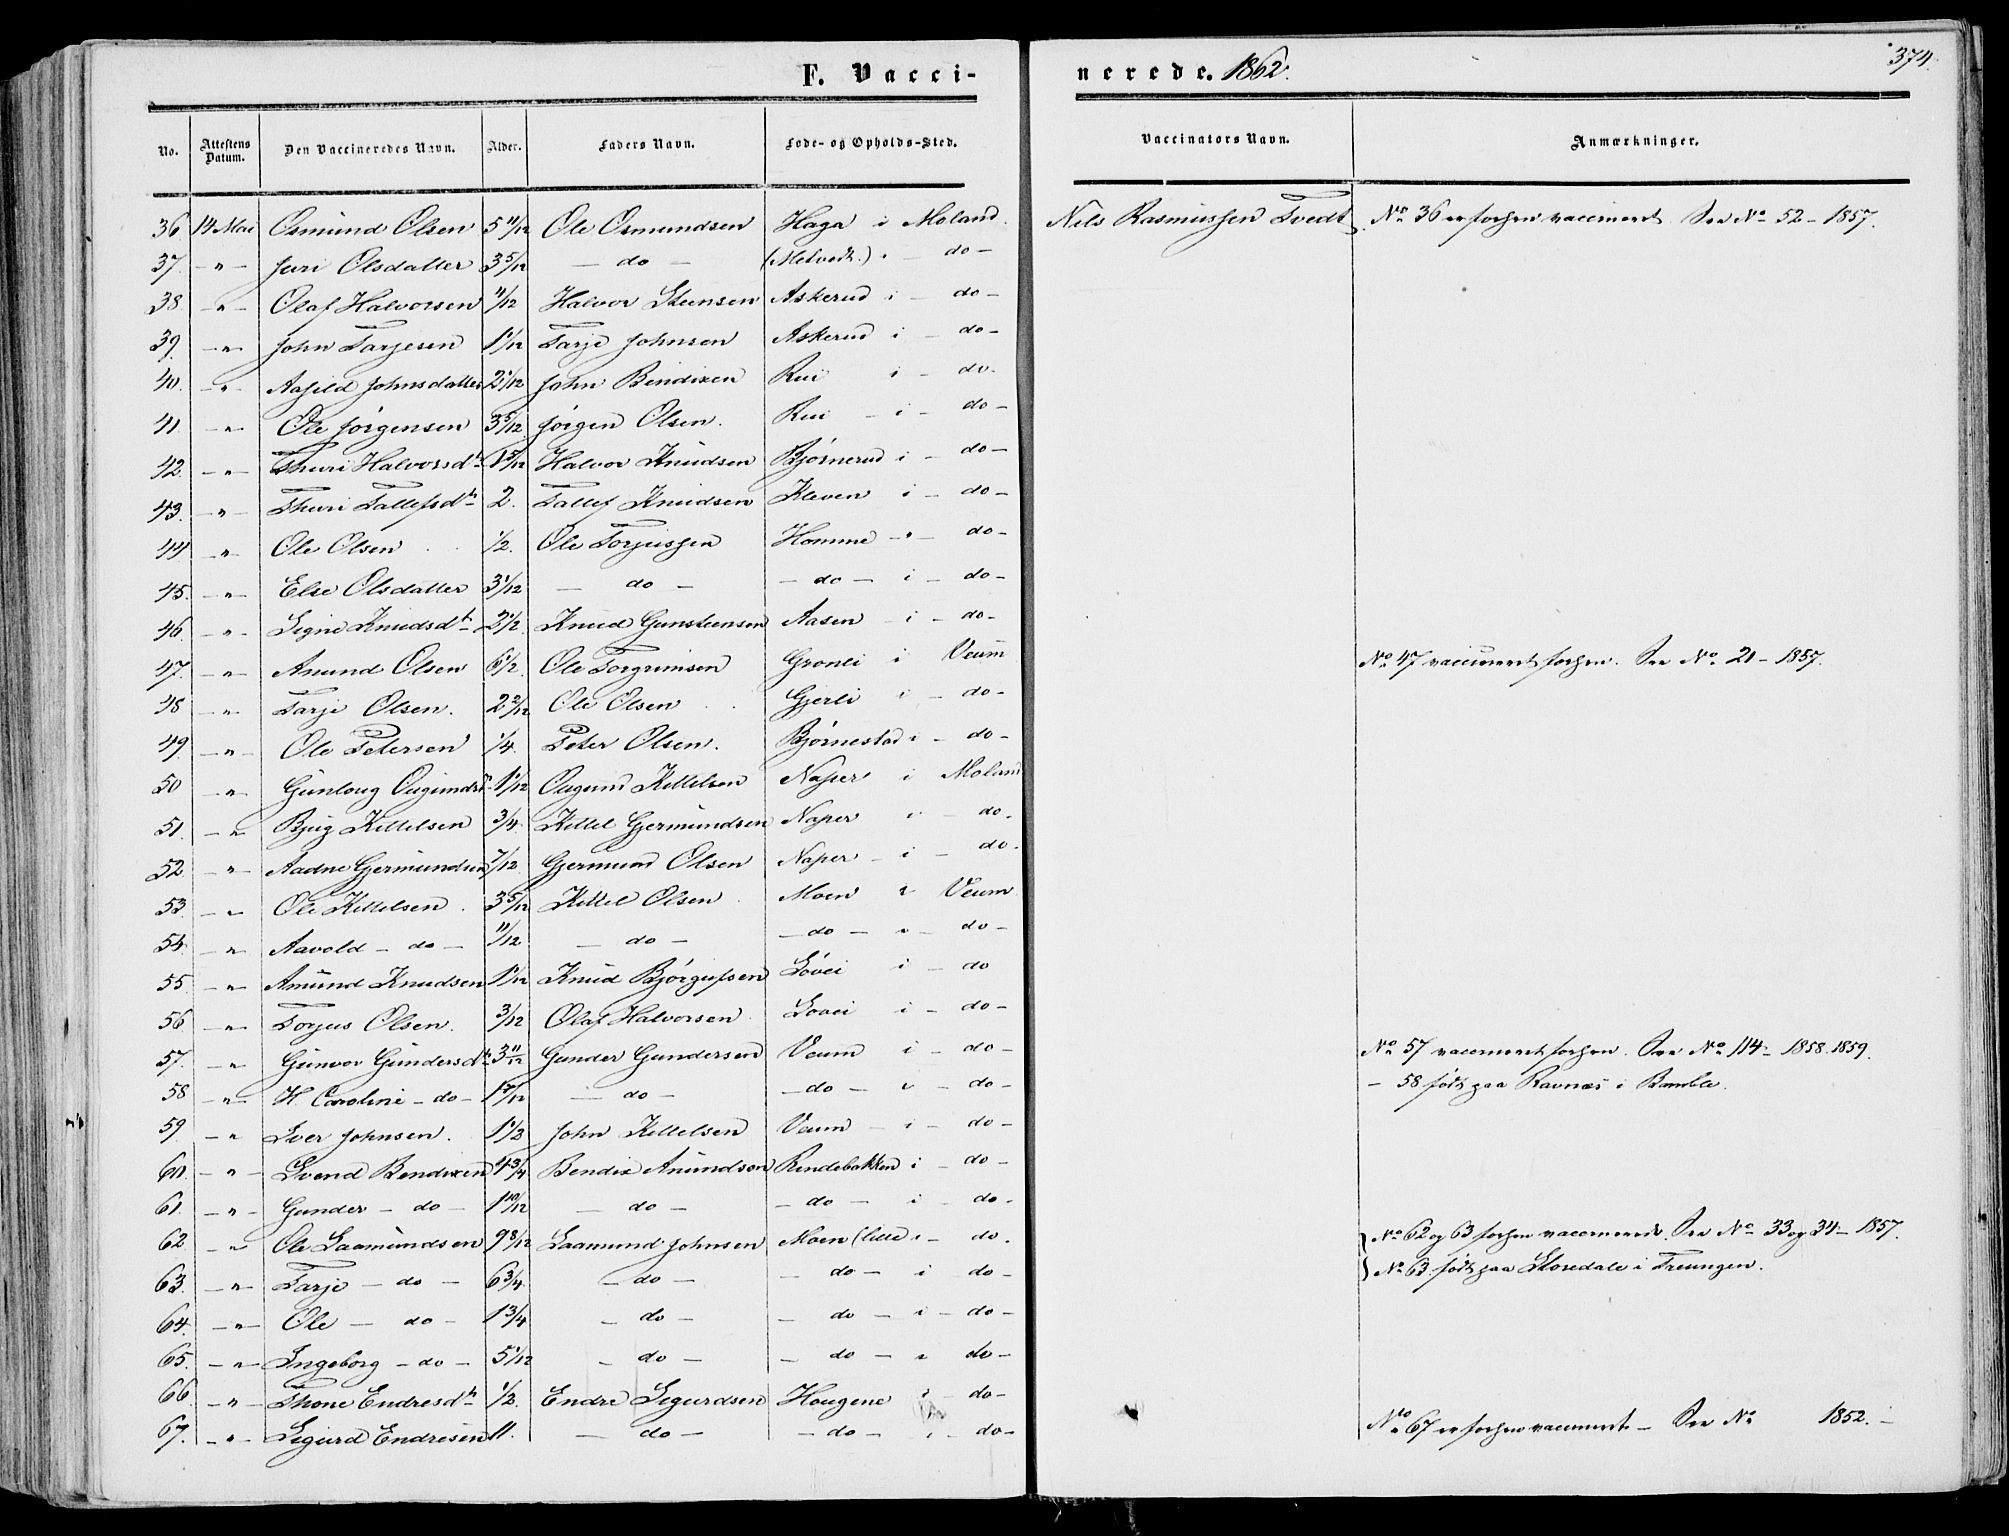 F. Vacci-
nerede. 1862.
374.
No. Attestens Datum. Den Vaccineredes Navn. Alder. Faders Navn. Føde- og Opholds-Sted. Vaccinators Navn. Anmærkninger.
36 14 Mai Osmund Olsen 5 11/12 Ole Osmundsen Haga i Moland. Nils Rasmussen Tvedt. No 36 er forhen vaccineret. See No 52 - 1857.
37. - " - Juri Olsdatter 3 5/12 - do - i - do -
38. - " - Olaf Halvorsen 11/12 Halvor Steensen Askerud i - do -
39. - " - John Tarjesen 1 1/12 Tarje Johnsen Askerud i - do -
40. - " - Aasild Johnsdatter 2 1/12 John Bendixen Rui i - do -
41. - " - Ole Jørgensen 3 5/12 Jørgen Olsen. Rui - i - do -
42. - " - Thuri Halvorsdtr 1 5/12 Halvor Knudsen Bjørnerud i - do -
43. - " - Thuri Tallefsdtr 2. Tallef Knudsen Kleven i - do -
44 - " - Ole Olsen 1/2. Ole Torjussen Homme - " - do -
45. - " - Else Olsdatter 3 1/12 - do - - do - i - do -
46. - " - Signe Knudsdtr 2 1/2 Knud Gunsteensen Aasen - i - do -
47. - " - Anund Olsen 6 1/2. Ole Torgrimsen Gronli i Veum No 47 vaccineret forhen. See No 21 - 1857.
48 - " - Tarje Olsen. 2 2/12 Ole Olsen Gjerli i - do -
49 - " - Ole Petersen 1/4. Peter Olsen. Bjørnestad i - do -
50 - " - Gunloug Ougundsd 1 1/12 Ougund Kittelsen Naper i Moland
51. - " - Bjug Kittelsen 3/4. Kittel Gjermundsen Naper i - do.
52 - " - Aadne Gjermundsen 7/12. Gjermund Olsen Naper - i - do.
53 - " - Ole Kittelsen 3 5/12 Kittel Olsen Moen i Veum
54. - " - Aavold - do - 11/12 - do - - do - i - do -
55 - " - Anund Knudsen 1 1/12 Knud Bjørgufsen Lövei i - do
56. - " - Torjus Olsen. 3/12 Olaf Halvorsen Lovei i - do -
57. - " - Gunvor Gundersdtr 3 11/12 Gunder Gundersen Veum i - do - No 57 vaccineret forhen. See No 114 - 1858.1859.
58 - " - H. Caroline - do - 1 7/12 - do - - do - i - do - - 58 født paa Ravnæs i Bamble.
59. - " - Iver Johnsen. 1 1/2 John Kittelsen Veum - i - do -
60. - " - Svend Bendixen 4 3/4 Bendix Anundsen Rindebakken i - do -
61. - " - Gunder - do - 1 10/12 - do - - do - i - do -
62 - " Ole Laamundsen 9 8/12 Laamund Johnsen Moen (lille i - do. No 62 og 63 forhen vaccinerede. See No 33 og 34 - 1857.
63. - " - Tarje - do - 6 3/4 - do - - do - i - do - No 63 født paa Storedale i Treungen.
64. - " - Ole - do - 1 3/4 - do - - do - i - do -
65. - " - Ingeborg - do - 5 1/12 - do - - do - " do -
66. - " - Thone Endresdtr 1/2. Endre Sigurdsen Hougene i - do -
67. - " - Sigurd Endresen 11. - do - - do - i - do - No 67 er forhen vaccineret - See No 1852. -